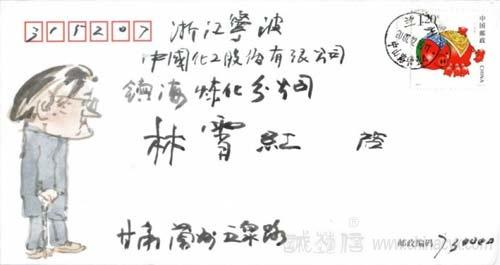 315207
浙江寧波
中國化工股份有限公司
鎮海炼化分公司
林霄紅 啓
甘肃蘭州五泉路
邮政编码 730000
1.20
中国邮政
CHINA